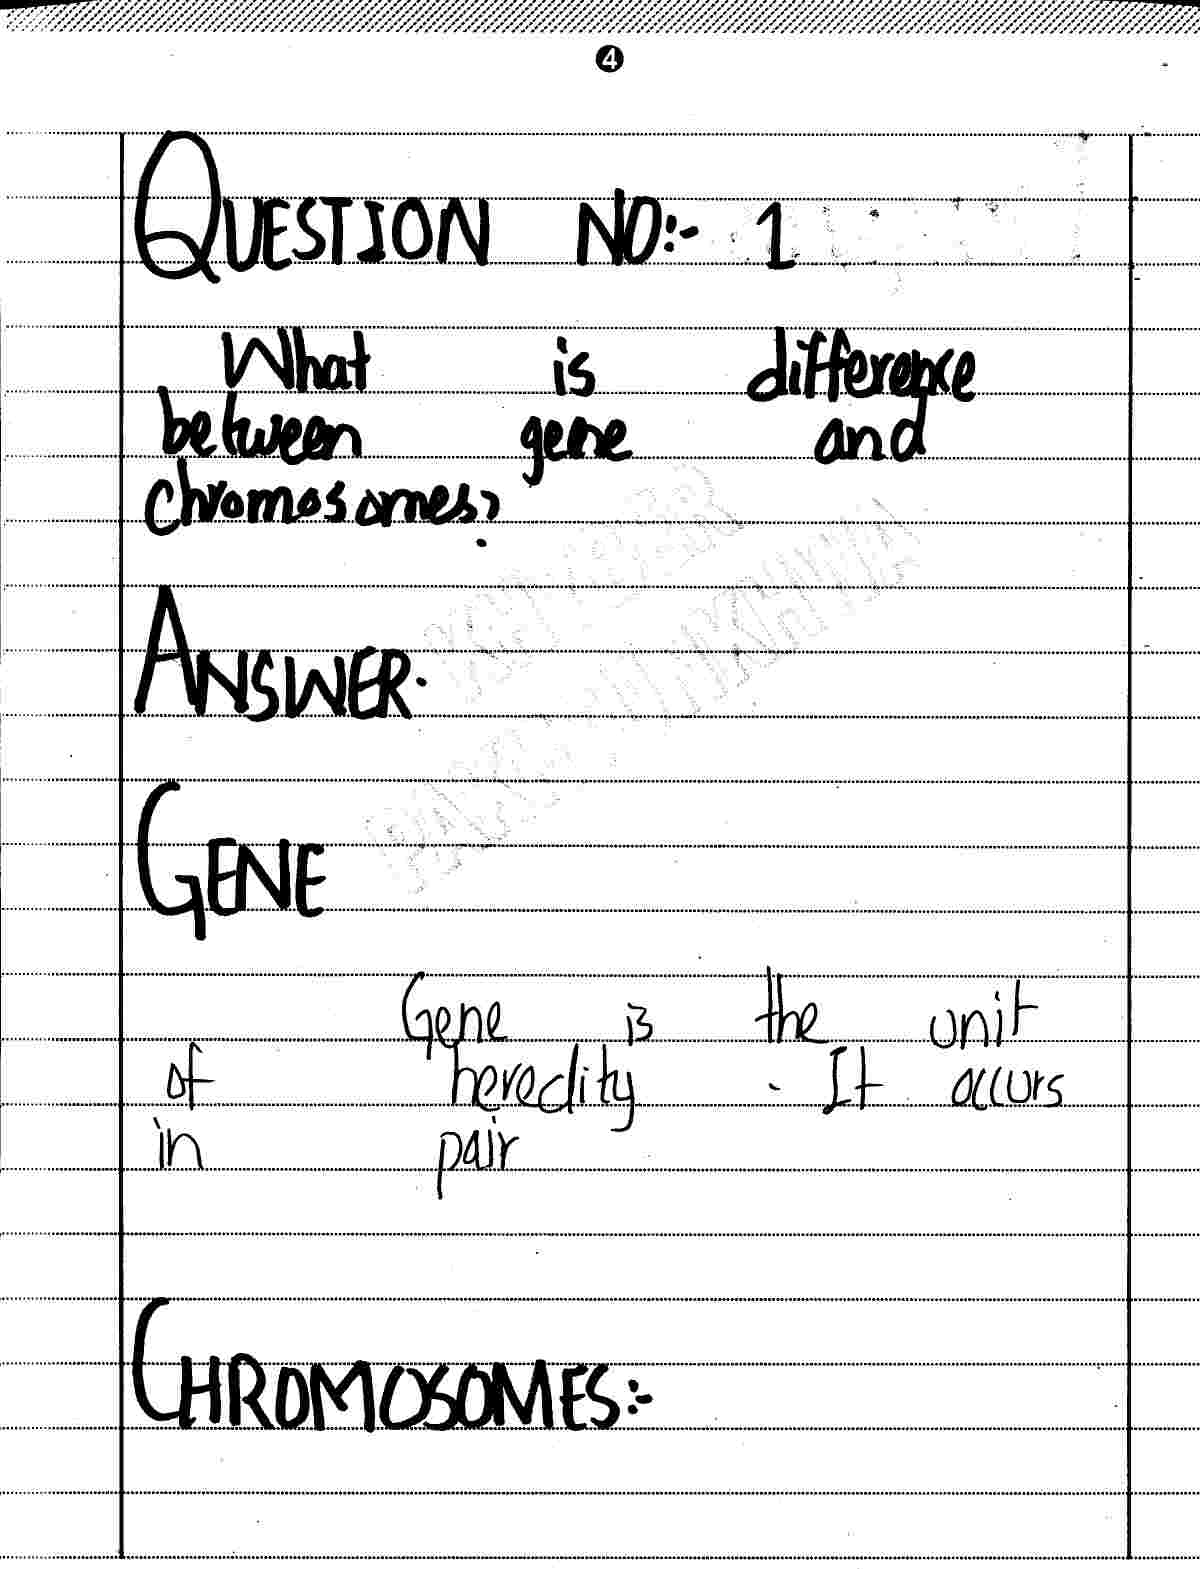 4
QUESTION NO:- 1
What is difference
between gene and
chromosomes?
ANSWER.
GENE
Gene is the unit
of heredity . It occurs
in pair
CHROMOSOMES:-